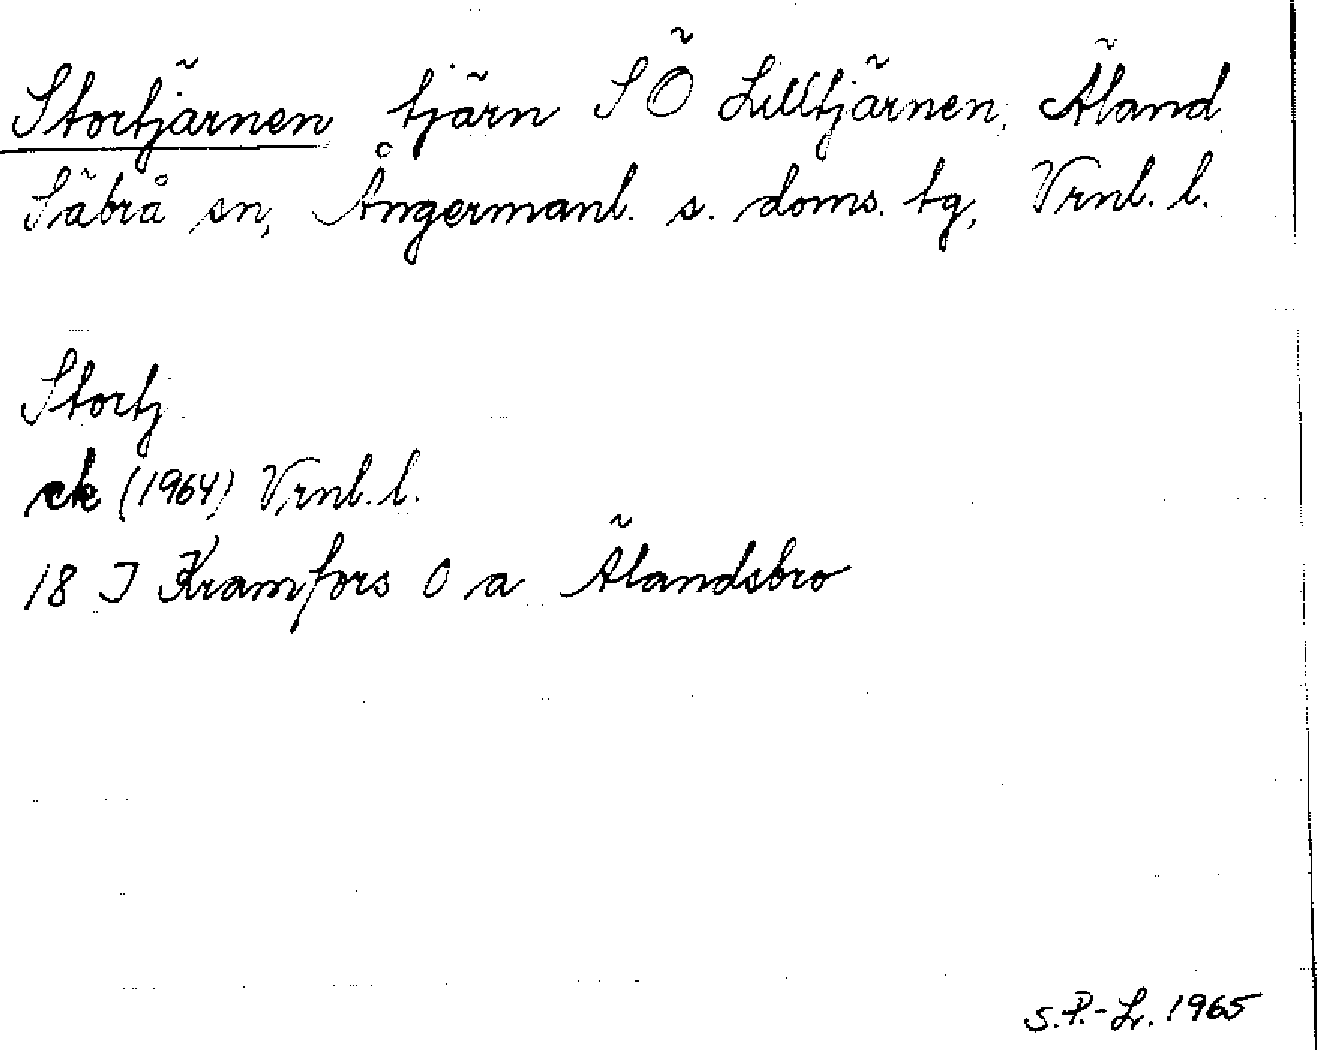 Stortjärnen tjärn SÖ Lilltjärnen, Äland
Säbrå sn, Ångermanl. s. doms. tg, Vrnl. l.
Stortj
ek (1964) Vrnl. l.
18 I Kramfors 0 a Älandsbro
S.P.-Lr. 1965